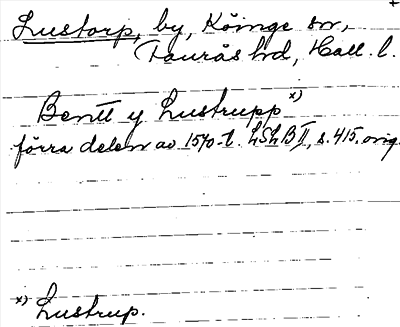 Lustorp, by, Köinge sn,
Faurås hd, Hall. l.
Bentt y Lustrupp x)
förra delen av 1540-t. LSLB II, s. 415, orig.
x) Lustrup.